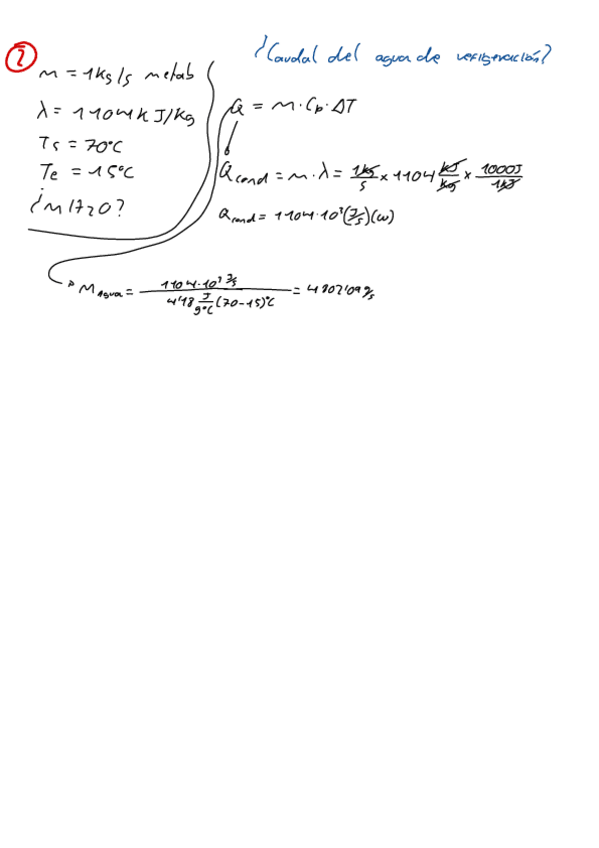 2
¿Caudal del agua de refrigeración?
m = 1 kg/s metab
λ = 1104 kJ/kg
Ts = 70°C
Te = 15°C
¿m H2O?
Q = m · Cp · ΔT
Qcond = m · λ = 1kg/s x 1104 kJ/kg x 1000J/1kJ
Qcond = 1104·10³ (J/s) (w)
Magua = 1104·10³ J/s / 4'18 J/g°C (70-15)°C = 4802'09 g/s